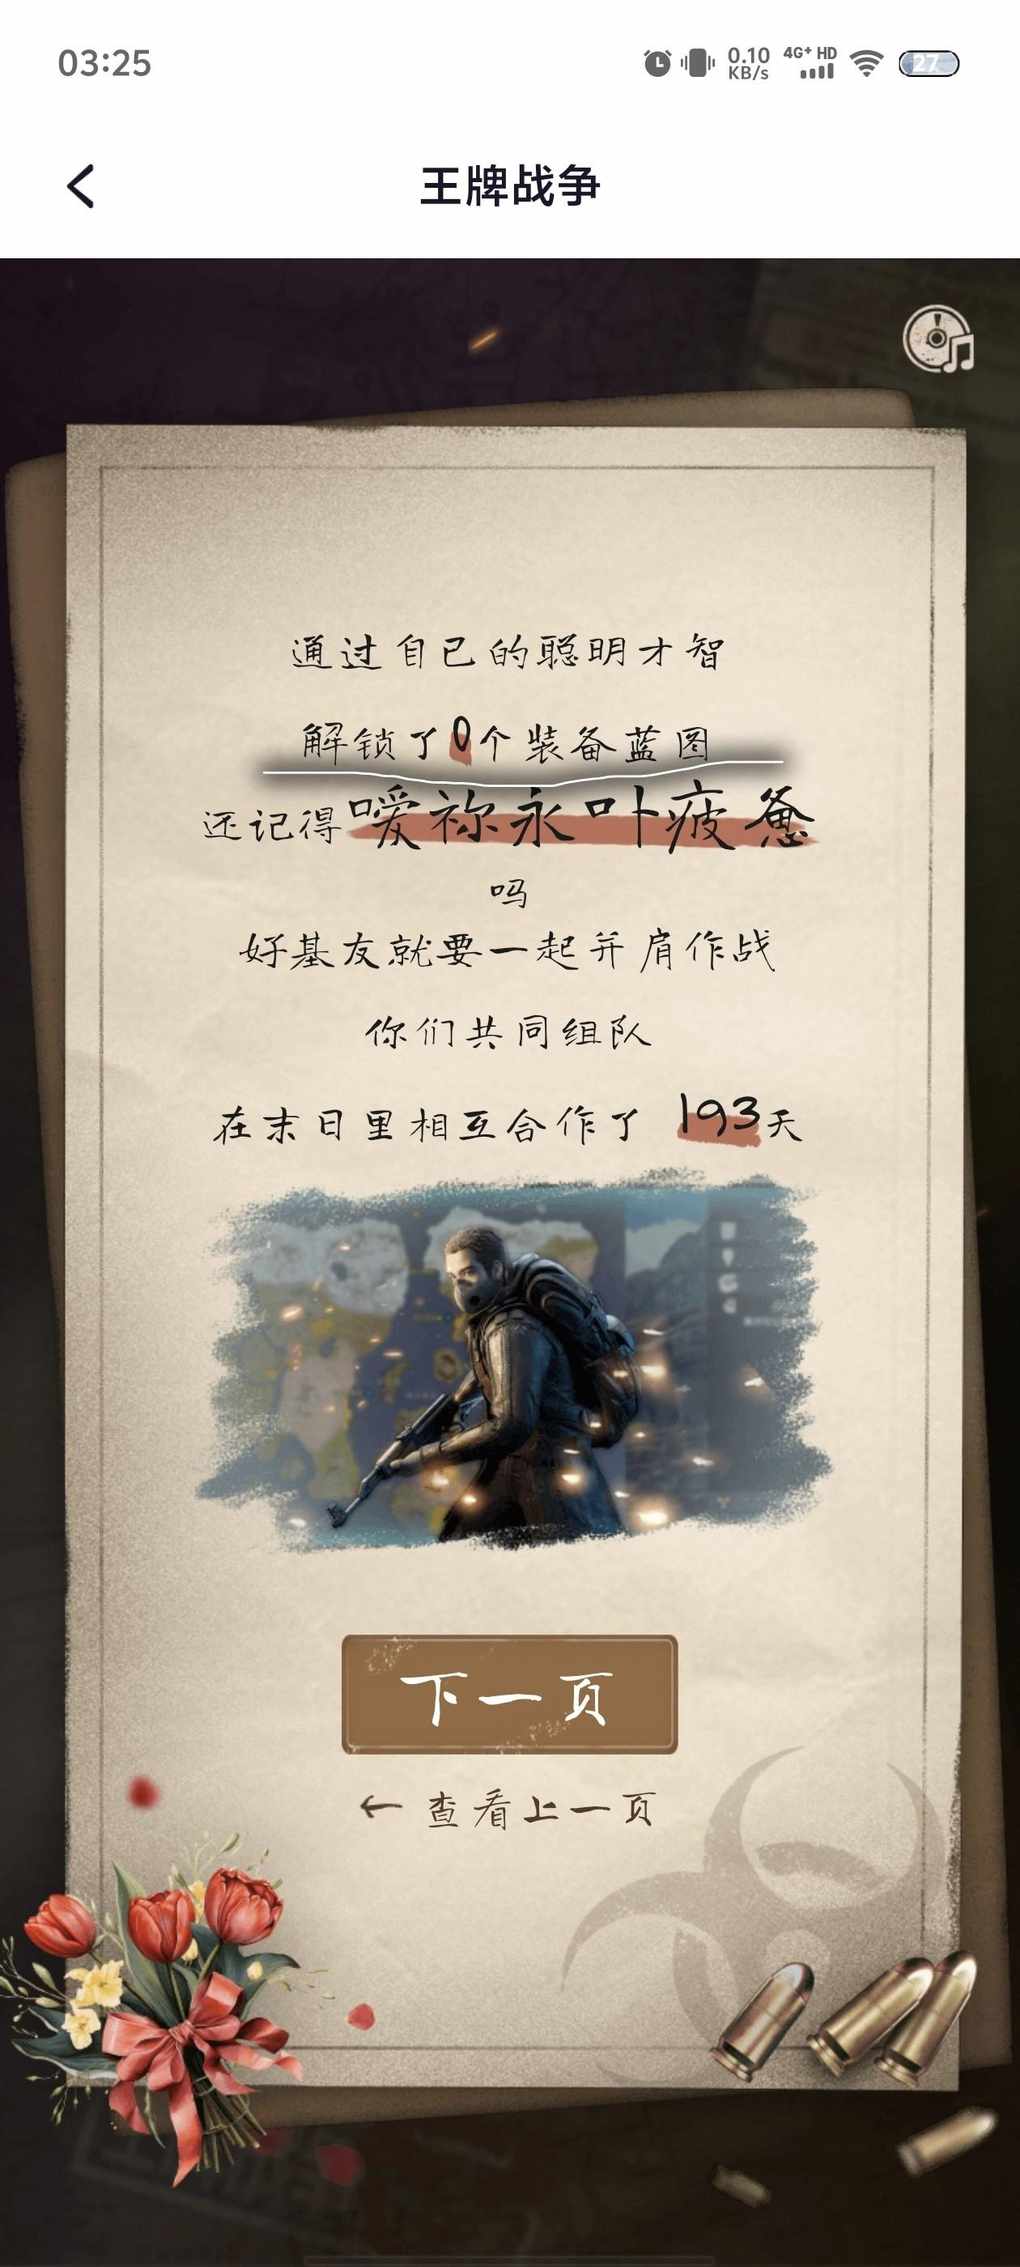 03:25
0.10 KB/s
4G+ HD
27
王牌战争
通过自己的聪明才智
解锁了0个装备蓝图
还记得嗳祢永叶疲惫
吗
好基友就要一起并肩作战
你们共同组队
在末日里相互合作了 193天
下一页
← 查看上一页